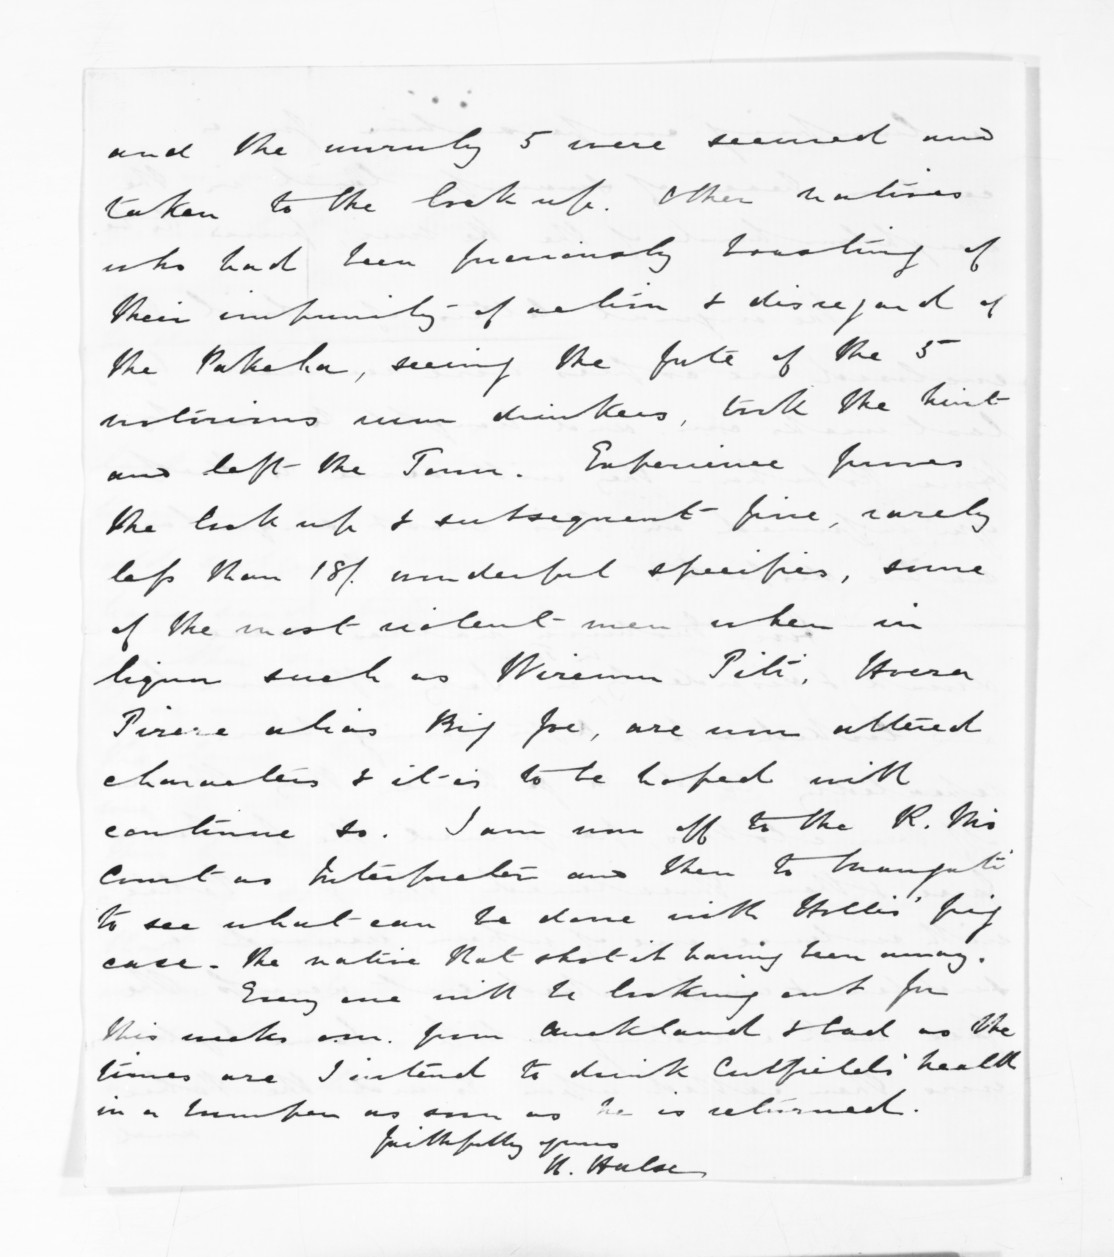 and the unruly 5 were secured and
taken to the lock up. Other natives
who had been previously boasting of
their impunity of action & disregard of
the Pakeha, seeing the fate of the 5
notorious rum drinkers, took the hint
and left the Town. Experience proves
the lock up & subsequent fine, rarely
less than 18/. wonderful specifics, some
of the most violent men when in
liquor such as Wiremu Piti, Hoera
Pirere alias Big Joe, are now altered
characters & it is to be hoped will
continue so. I am now off to the R. Ms
Court as Interpreter and then to
to see what can be done with Hollis' pig
case - the native that shot it having been away.
Every one will be looking out for
this weeks from Auckland & bad as the
times are I intend to drink Cutfield's health
in a bumper as soon as he is returned.
faithfully yours
H. Halse